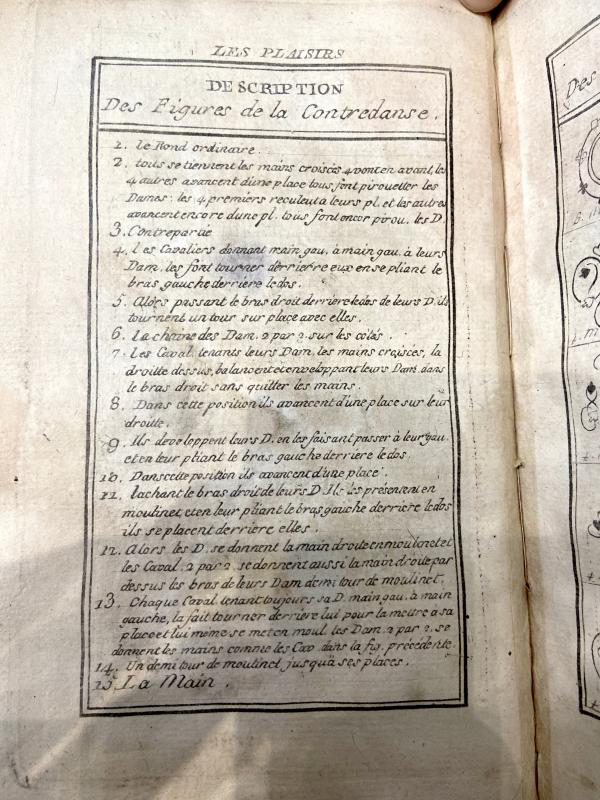 LES PLAISIRS
DESCRIPTION
Des Figures de la Contredanse.
1. le Rond ordinaire.
2. tous se tiennent les mains croisées 4 vont en avant, les
4 autres avancent d'une place tous font pirouetter les
Dames: les 4 premiers reculent a leurs pl. et les autres
avancent encore d'une pl. tous font encor pirou. les D.
3. Contrepartie
4. Les Cavaliers donnant main gau. à main gau. à leurs
Dam. les font tourner derrierre eux en se pliant le
bras gauche derriere le dos.
5. Alors passant le bras droit derriere le dos de leurs D. ils
tournent un tour sur place avec elles.
6. La chaine des Dam. 2 par 2 sur les cotés.
7. Les Caval. tenants leurs Dam. les mains croisées, la
droitte dessus, balancent et enveloppant leurs Dam. dans
le bras droit sans quitter les mains.
8. Dans cette position ils avancent d'une place sur leur
droitte.
9. Ils developpent leurs D. en les faisant passer à leur gau.
et en leur pliant le bras gauche derriere le dos.
10. Dans cette position ils avancent d'une place.
11. lachant le bras droit de leurs D. Ils les présentent en
moulinet, et en leur pliant le bras gauche derriere le dos
ils se placent derriere elles.
12. Alors les D. se donnent la main droite en moulinet et
les Caval. 2 par 2. se donnent aussi la main droite par
dessus les bras de leurs Dam. demi tour de moulinet.
13. Chaque Caval. tenant toujours sa D. main gau. à main
gauche, la fait tourner derriere lui pour la mettre à sa
place et lui meme se met en moul. les Dam. 2 par 2. se
donnent les mains comme les Cav. dans la fig. précédente.
14. Un demi tour de moulinet jusqu'à ses places.
15. La Main.
Des